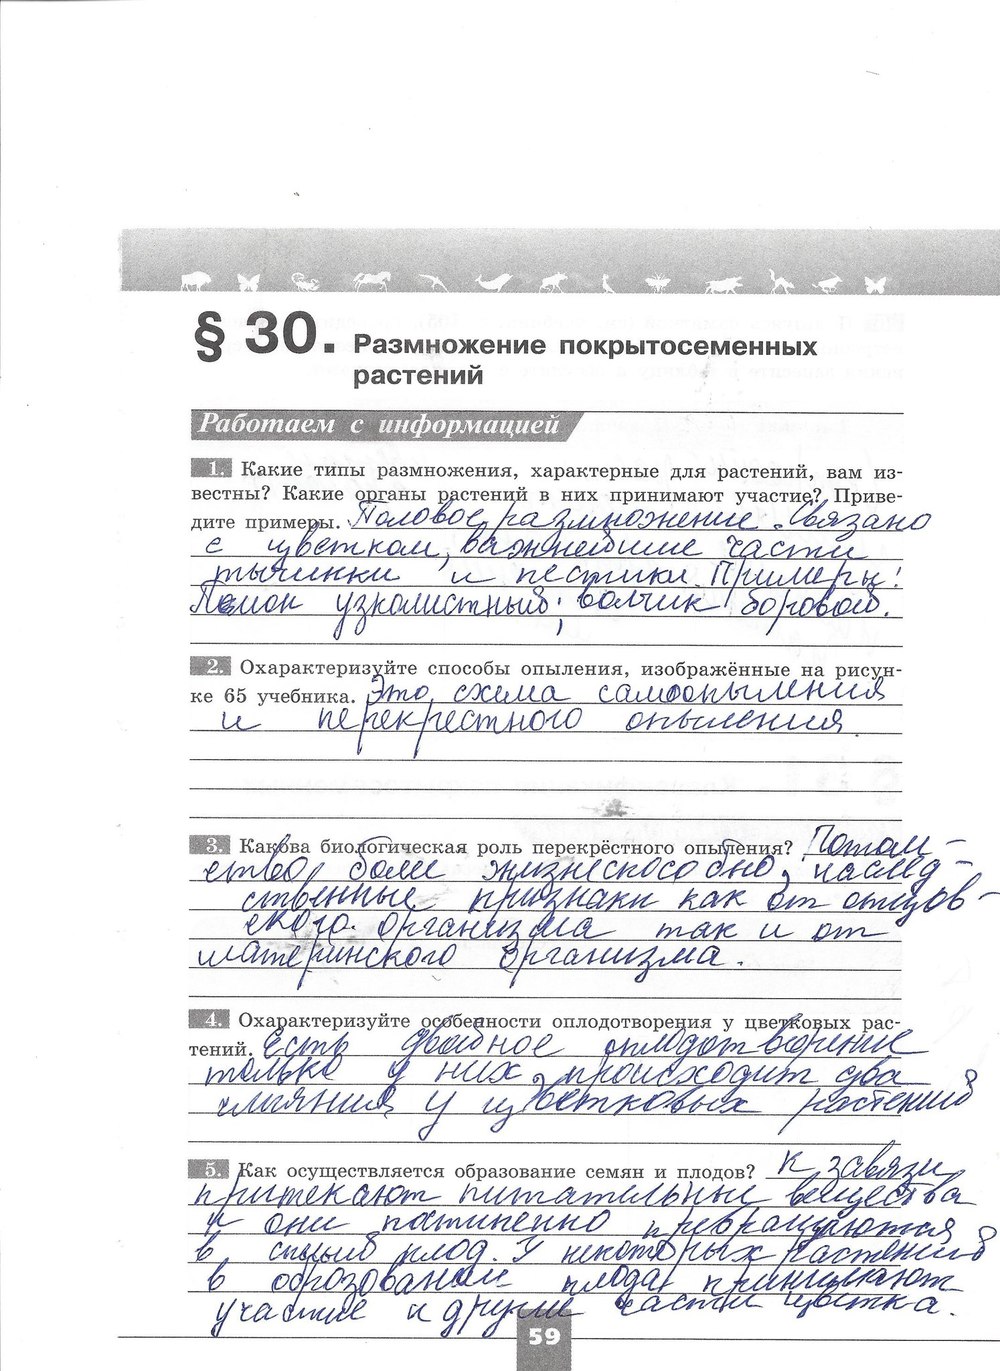 § 30. Размножение покрытосеменных
растений
Работаем с информацией
1. Какие типы размножения, характерные для растений, вам из-
вестны? Какие органы растений в них принимают участие? Приве-
дите примеры. Половое размножение. Связано
с цветком, важнейшие части
тычинки и пестики. Примеры:
Пион узколистный; волчик боровой.
2. Охарактеризуйте способы опыления, изображённые на рисун-
ке 65 учебника. Это схема самоопыления
и перекрестного опыления.
3. Какова биологическая роль перекрёстного опыления? Потом-
ство более жизнеспособно, наслед-
ственные признаки как от отцов-
ского организма так и от
материнского организма.
4. Охарактеризуйте особенности оплодотворения у цветковых рас-
тений. Есть двойное оплодотворение
только у них, происходит два
слияния у цветковых растений
5. Как осуществляется образование семян и плодов? К завязи
притекают питательные вещества
и они постипенно превращуются
в спелый плод. У некоторых растений
в образовании плода принимают
участие и другие части цветка.
59